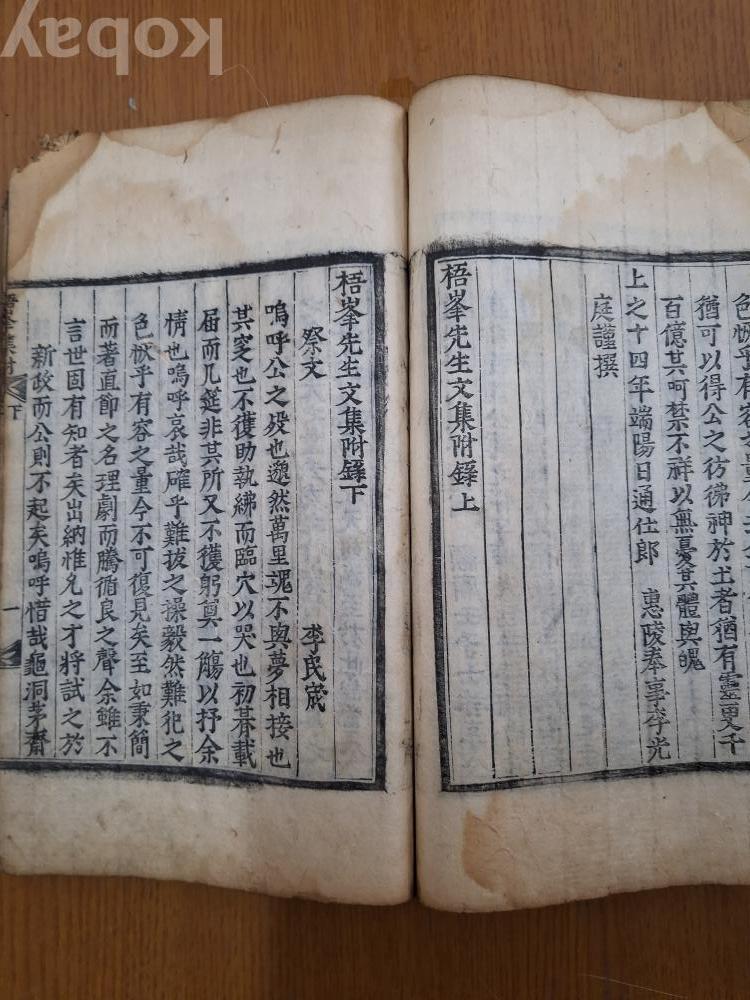 猶可以得公之彷彿神於土者猶有靈更千
百億其呵禁不祥以無憂其體與魄
上之十四年端陽日通仕郞 惠陵奉事李光
庭謹撰
梧峯先生文集附錄上
梧峯先生文集附錄下
祭文 李民宬
嗚呼公之歿也邈然萬里魂不與夢相接也
其窆也不獲助執紼而臨穴以哭也初朞載
届而几筵非其所又不獲躬奠一觴以抒余
情也嗚呼哀哉確乎難拔之操毅然難犯之
色愀乎有容之量今不可復見矣至如秉簡
而著直節之名理劇而騰循良之聲余雖不
言世固有知者矣出納惟允之才將試之於
新政而公則不起矣嗚呼惜哉龜洞茅齋
下 一
kobay